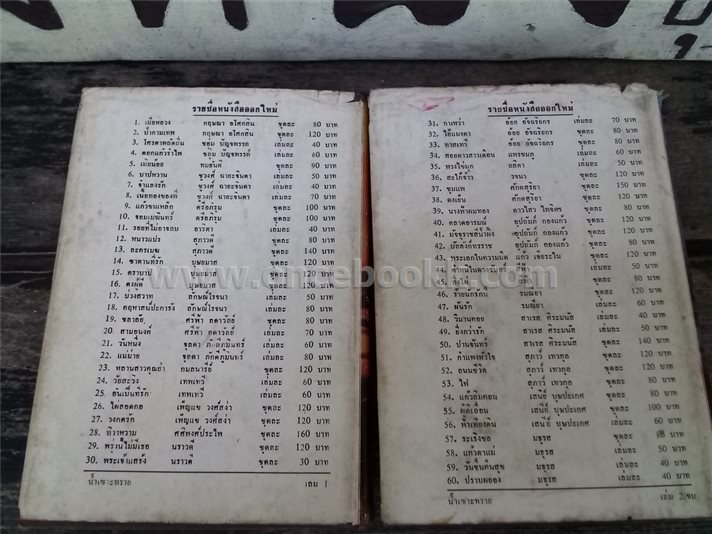 รายชื่อหนังสือออกใหม่
1. เมียหลวง กฤษณา อโศกสิน ชุดละ 80 บาท
2. น้ำผึ้งขม กฤษณา อโศกสิน ชุดละ 120 บาท
3. โสรดาพลัดถิ่น ชอุ่ม ปัญจพรรค์ เล่มละ 40 บาท
4. ดอกแก้วรำไพ ชอุ่ม ปัญจพรรค์ เล่มละ 60 บาท
5. เมียน้อย ทมยันตี ชุดละ 90 บาท
6. บาปหวาน ชูวงศ์ ฉายะจินดา เล่มละ 50 บาท
7. จำเลยรัก ชูวงศ์ ฉายะจินดา เล่มละ 60 บาท
8. เนื้อทองของพี่ ชูวงศ์ ฉายะจินดา เล่มละ 70 บาท
9. แก้วขนเหล็ก ตรีอภิรุม ชุดละ 100 บาท
10. จอมเมฆินทร์ ตรีอภิรุม ชุดละ 100 บาท
11. รอยที่ไม่อาจลบ อารดา เล่มละ 40 บาท
12. หนาวแปร สุภาวดี ชุดละ 80 บาท
13. ละครเมฆ สุภาวดี ชุดละ 140 บาท
14. ซาตานที่รัก บุษยมาส ชุดละ 120 บาท
15. ตราบาป บุษยมาส ชุดละ 120 บาท
16. บุษยมาส ชุดละ 120 บาท
17. บ่วงสวาท ลักษณ์โรจนา เล่มละ 50 บาท
18. คฤหาสน์ปะการัง ลักษณ์โรจนา ชุดละ 80 บาท
19. ชลาลัย ศรีฟ้า ลดาวัลย์ ชุดละ 80 บาท
20. สามอนงค์ ศรีฟ้า ลดาวัลย์ เล่มละ 70 บาท
21. วันหนึ่ง จุลดา ภักดีภูมินทร์ เล่มละ 60 บาท
22. แม่ม่าย จุลดา ภักดีภูมินทร์ ชุดละ 80 บาท
23. หลานสาวคุณย่า กมลนารี ชุดละ 120 บาท
24. วัยสะวิง เทพเทวี เล่มละ 60 บาท
25. อันเป็นที่รัก เทพเทวี เล่มละ 60 บาท
26. ไผ่ลอดกอ เพ็ญแข วงศ์สง่า ชุดละ 120 บาท
27. วงกตรัก เพ็ญแข วงศ์สง่า ชุดละ 120 บาท
28. ทิวาหวาม ศศิพงศ์ประไพ ชุดละ 160 บาท
29. พรุ่งนี้ไม่มีเธอ นราวดี ชุดละ 120 บาท
30. พระเจ้าแสร้ง นราวดี ชุดละ 30 บาท
น้ำเซาะทราย เล่ม 1
รายชื่อหนังสือออกใหม่
31. กาเหว่า อ้อย อัจฉริยกร เล่มละ 70 บาท
32. ไอ้แมงดา อ้อย อัจฉริยกร ชุดละ 80 บาท
33. ทาสเทวี อ้อย อัจฉริยกร ชุดละ 80 บาท
34. สอยดาวสาวเดือน แพรชมภู เล่มละ 60 บาท
35. พวงไข่มุก ลลิตา เล่มละ 50 บาท
36. สะใภ้จ้าว รจนา ชุดละ 120 บาท
37. ขุนแพ ศักดิ์สุริยา ชุดละ 150 บาท
38. ดงเย็น ศักดิ์สุริยา ชุดละ 80 บาท
39. นางฟ้าผมทอง ดาวใส ไพจิตร ชุดละ 120 บาท
40. ตลาดอารมณ์ อุปถัมภ์ กองแก้ว ชุดละ 120 บาท
41. มัจจุราชน้ำผึ้ง อุปถัมภ์ กองแก้ว ชุดละ 120 บาท
42. บัลลังก์ทรราช อุปถัมภ์ กองแก้ว ชุดละ 80 บาท
43. พระเอกในความมืด แก้ว เจียระไน ชุดละ 120 บาท
44. ชุดละ 120 บาท
45. ชุดละ 80 บาท
46. รมณียา ชุดละ 120 บาท
47. ฝันรัก รมณียา เล่มละ 60 บาท
48. วิมานคอย สาเรศ ศิระมนัส เล่มละ 40 บาท
49. ยิ่งกว่ารัก สาเรศ ศิระมนัส เล่มละ 50 บาท
50. ปานขนิษฐ์ สาเรศ ศิระมนัส ชุดละ 140 บาท
51. กำแพงหัวใจ สุภาว์ เทวกุล ชุดละ 120 บาท
52. ถนนชีวิต สุภาว์ เทวกุล ชุดละ 120 บาท
53. ไฟ สุภาว์ เทวกุล ชุดละ 80 บาท
54. แก้วลืมคอน เสนีย์ บุษปะเกศ ชุดละ 80 บาท
55. ผีดีเถื่อน เสนีย์ บุษปะเกศ ชุดละ 100 บาท
56. ฟ้าเพียงดิน เสนีย์ บุษปะเกศ เล่มละ 60 บาท
57. ชะเริงชล มธุรส ชุดละ 80 บาท
58. แก้วตาแม่ มธุรส เล่มละ 50 บาท
59. วันชื่นคืนสุข มธุรส เล่มละ 40 บาท
60. ปราบพยอง มธุรส เล่มละ 40 บาท
น้ำเซาะทราย เล่ม 2 จบ